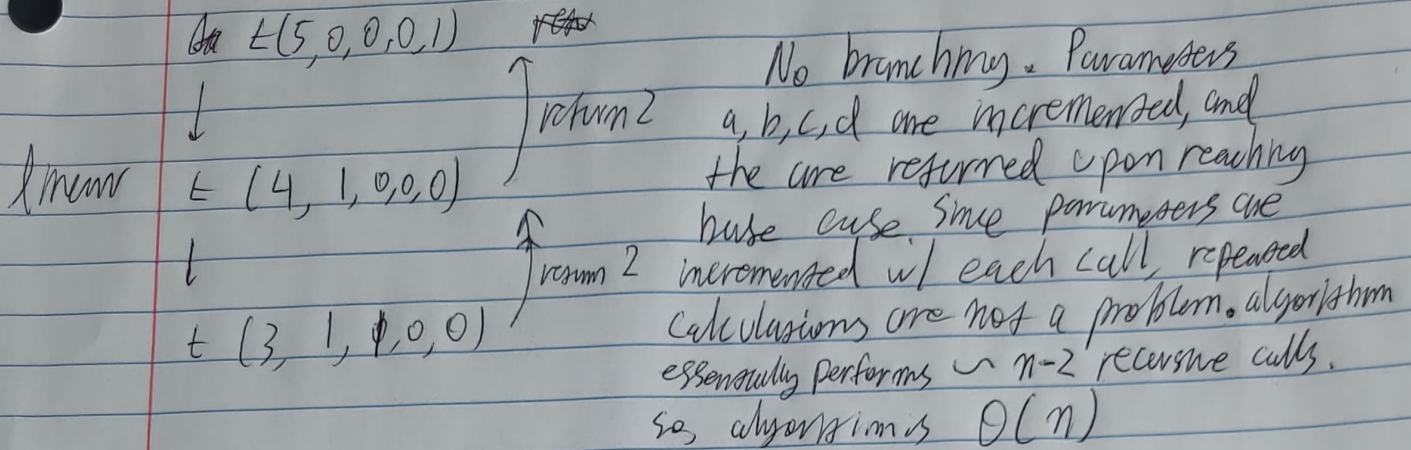 t(5,0,0,0,1)
↓
linear t (4, 1, 0,0,0)
↓
t (3, 1, 1,0,0)
return 2
return 2
No branching. Parameters
a, b, c, d are incremented, and
the are returned upon reaching
base case. Since parameters are
incremented w/ each call, repeated
calculations are not a problem. algorithm
essentially performs ~ n-2 recursive calls.
so, algorithm is Θ(n)